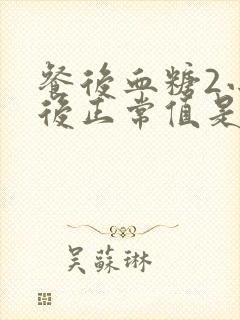 餐後血糖2
後正常值是
吴蘇琳